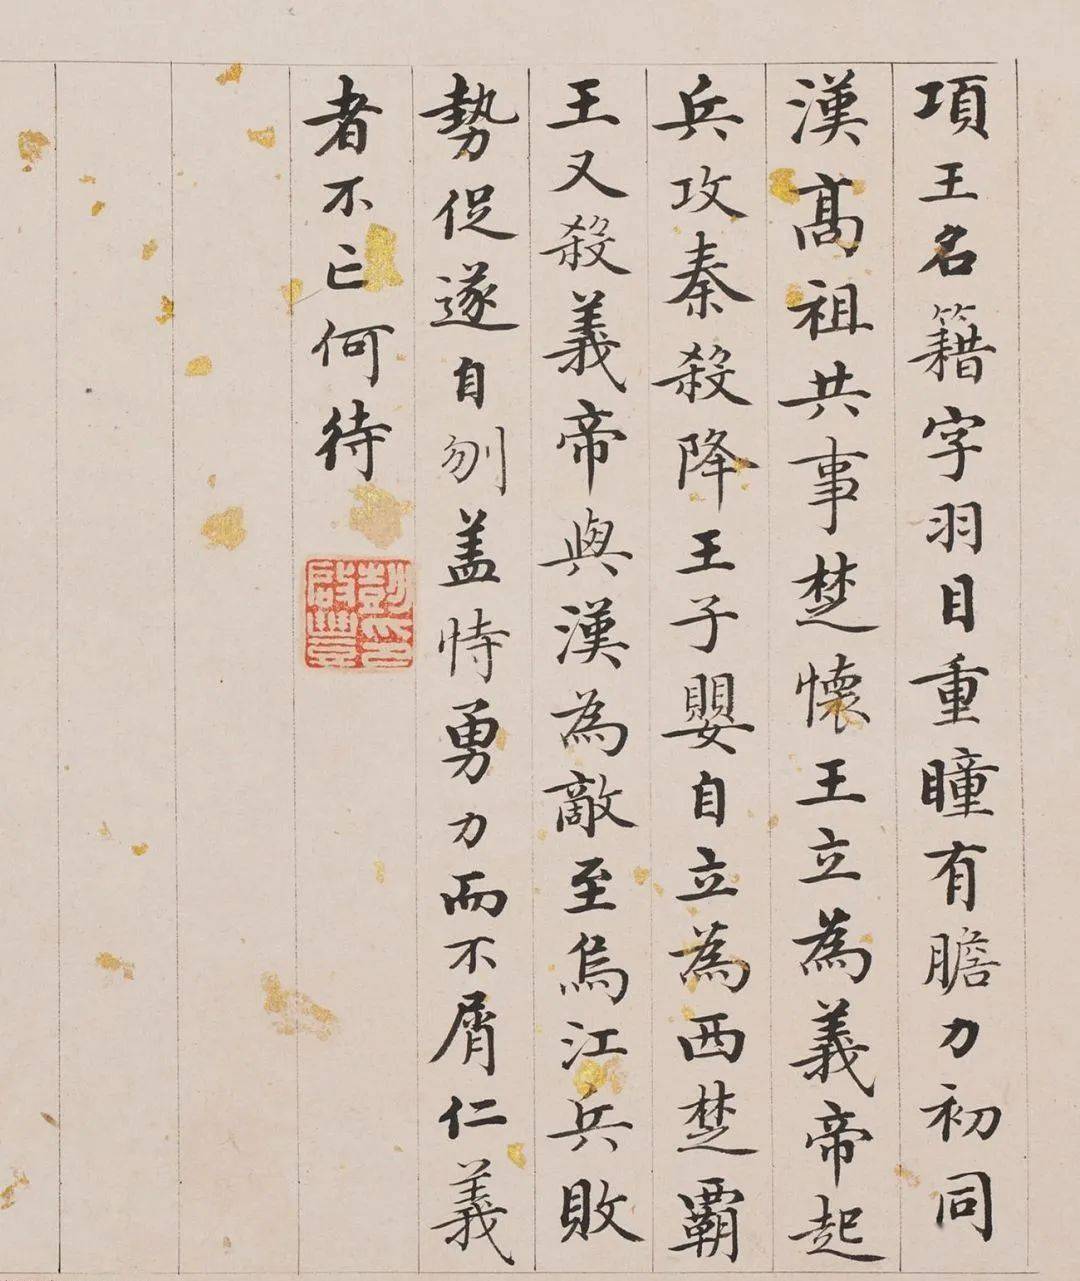 項王名籍字羽目重瞳有膽力初同
漢髙祖共事楚懷王立為義帝起
兵攻秦殺降王子嬰自立為西楚霸
王又殺義帝與漢為敵至烏江兵敗
勢促遂自刎盖恃勇力而不屑仁義
者不亡何待
彭印啟豐